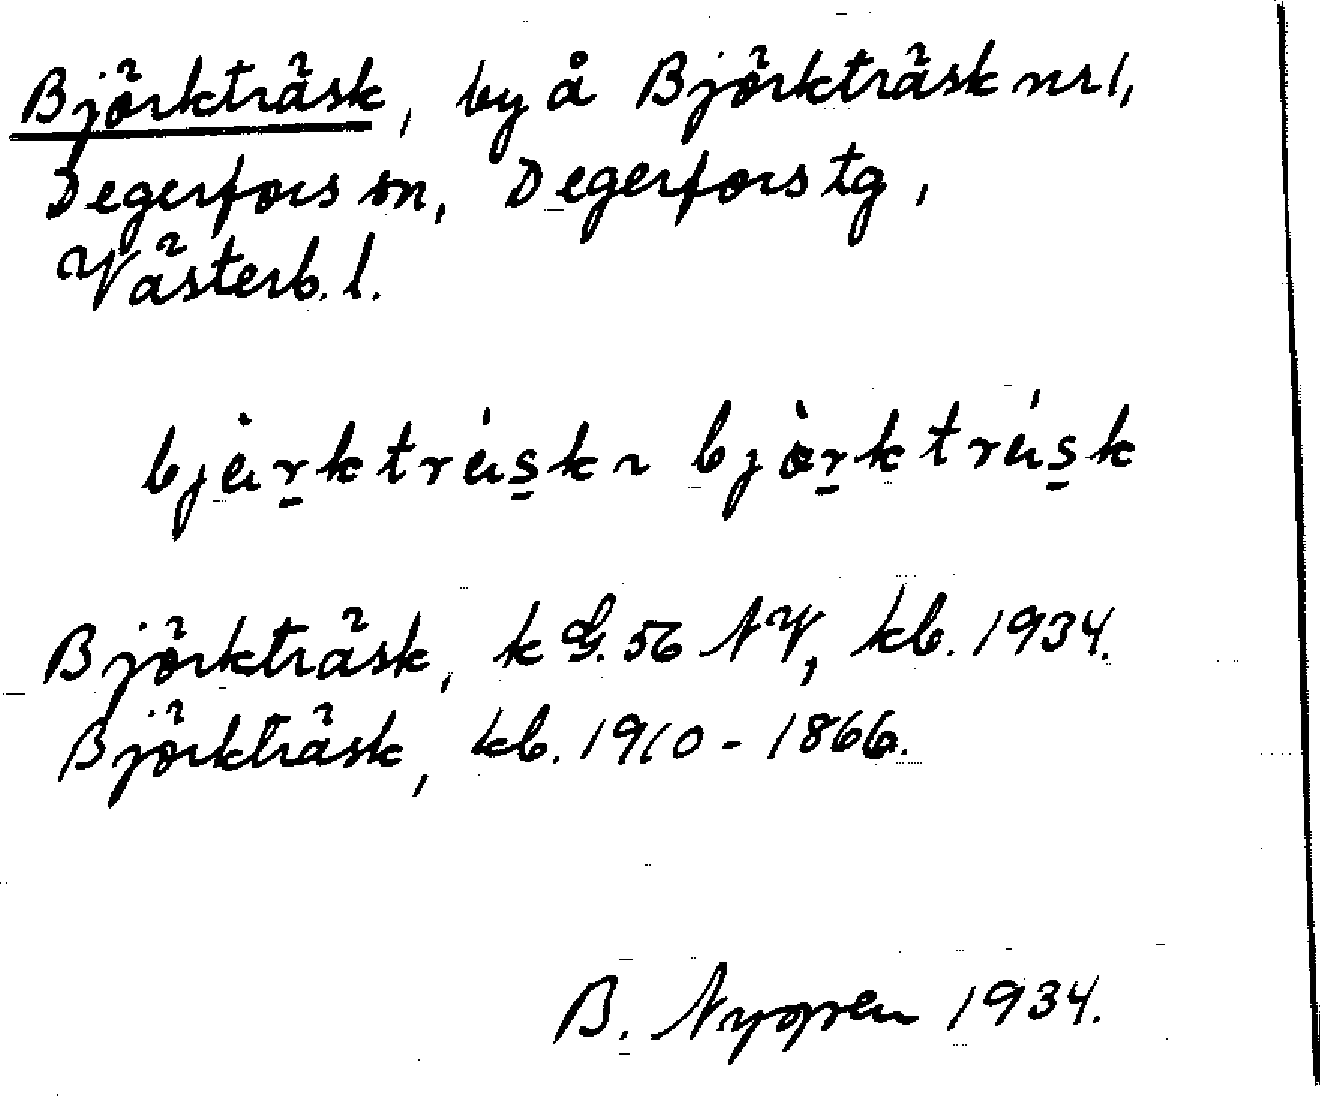 Björkträsk, by å Björkträsk nr 1,
Degerfors sn, Degerfors tg,
Västerb. l.
Björkträsk, k G. 56 NV, kb. 1934.
Björkträsk, kb. 1910 - 1866.
B. Nygren 1934.